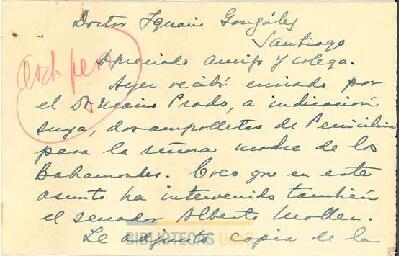 Doctor Ignacio González
Santiago
Apreciado amigo y colega.
Ayer recibí enviado por
el Dr. Prado, a indicación
suya, dos ampolletas de Penicilina
para la señora madre de los
Bahamondes. Creo que en este
asunto ha intervenido también
el senador Alberto Moller.
Le adjunto copia de la
BIBLIOTECAS